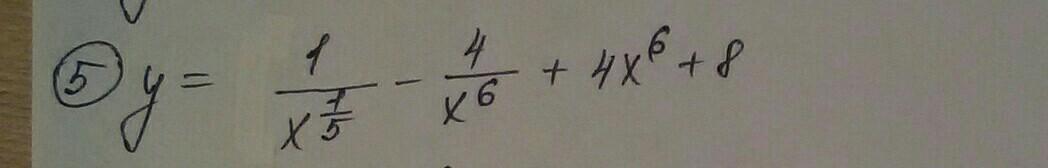 ⑤ y = 1/x^(1/5) - 4/x^6 + 4x^6 + 8